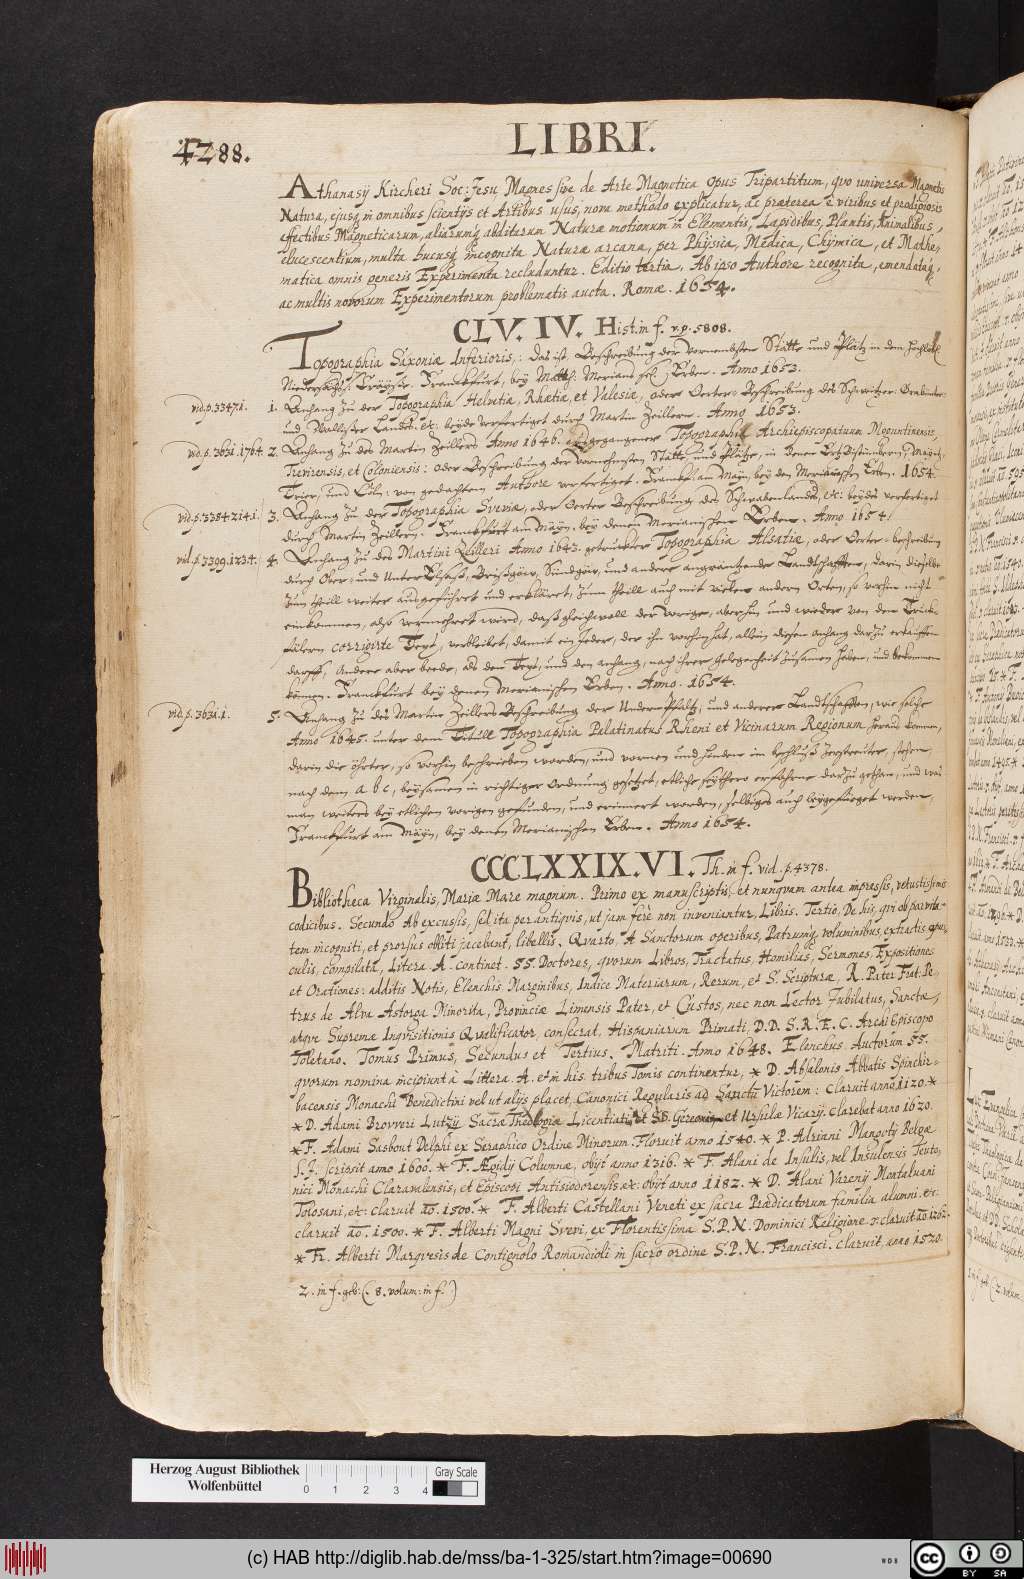 4288.
LIBRI.
Athanasÿ Kircheri Soc: Jesu Magnes sive de Arte Magnetica opus Tripartitum, quo universa Magnetis
Natura, ejusq; in omnibus scientÿs et Artibus usus, nova methodo explicatur, ac præterea è viribus et prodigiosis
effectibus Magneticarum, aliarumq; abditarum Naturæ motionum in Elementis, Lapidibus, Plantis, Animalibus,
elucescentium, multa hucusq; incognita Naturæ arcana, per Physica, Medica, Chÿmica, et Mathe-
matica omnis generis Experimenta recluduntur. Editio tertia. Ab ipso Authore recognita, emendataq;
ac multis novorum Experimentorum problematis aucta. Romæ. 1654.
CLV. IV. Hist. in f. v.p. 5808.
Topographia Saxoniæ Inferioris,: Das ist Beschreibung der vornembsten Stätte und Plätz in dem hochlöbl
Niedersächß: Cräyse. Franckfurt, beÿ Matth. Merians sel. Erben. Anno 1653.
vid. p. 3347.1.
1. Anhang zu der Topographia Helvetiæ, Rhætiæ, et Valesiæ, oder Oerter-Beschreibung des Schweitzer Grabündter
und Wallisser Landts etc. beÿde verfertiget durch Martin Zeillern. Anno 1653.
vid. p. 3631.1.764.
2. Anhang zu des Martin Zeillers Anno 1646. außgegangener Topographiæ Archiepiscopatuum Moguntinensis,
Trevirensis, et Coloniensis: oder Beschreibung der vornehmsten Stätte und Plätze, in denen Ertzbistumern, Mayntz,
Trier, und Cöln: von gedachtem Authore verfertiget. Franckf: am Maÿn, beÿ den Merianischen Erben. 1654.
vid. p. 3384.214.1.
3. Anhang zu der Topographia Sveviæ, oder Oerter Beschreibung des Schwabenlandes, etc: beÿdes verfertiget
durch Martin Zeillern. Franckfurt am Maÿn, beÿ denen Merianischen Erben. Anno 1654.
vid. p. 3399.123.4.
4. Anhang zu des Martini Zeilleri Anno 1643. getruckter Topographia Alsatiæ, oder Oerter-beschreibung
durch Ober- und Unter Elsaß, Brißgöw, Sundgöw, und anderer angrantzender Landtschafften, darin dieselbe
zum theill weiter außgeführet und erkläret, zum theill auch mit vielen andern Orten, so vorhin nicht
einkommen, also vermehret wird, daß gleichwoll der vorige, aber hin und wieder von den Truck-
fählern corrigirte Text, verbleibet, damit ein Jeder, der ihn vorhin hat, allein diesen anhang darzu erkauffen
darff, Andere aber beede, als den Text, und den anhang, nach ihrer gelegenheit zusamen haben, und bekommen
können. Franckfurt beÿ denen Merianischen Erben. Anno. 1654.
vid. p. 3631.1.
5. Anhang zu des Martin Zeillers Beschreibung der Undern Pfaltz, und anderer Landtschafften, wie solche
Anno 1645. unter dem Titull Topographia Palatinatus Rheni et Vicinarum Regionum herauß kommen,
darin die öhrter, so vorhin beschrieben worden, und vornen und hinden im beschluß zerstreuter, stehen,
nach dem a b c, beÿsamen in richtiger Ordnung gesetzet, etliche seithero erfahrne darzu gethan, und was
man weiters beÿ etlichen vorigen gefunden, und erinnert worden, selbiges auch beÿgefüeget werden.
Franckfurt am Maÿn, beÿ denen Merianischen Erben. Anno 1654.
CCCLXXIX. VI. Th. in f. vid. p. 4378.
Bibliotheca Virginalis, Mariæ Mare magnum. Primo ex manuscriptis et nunqvam antea impressis, vetustissimis
codicibus. Secundo Ab excussis, sed ita per antiqvis, ut jam ferè non inveniantur, Libris. Tertiò, De his, qvi ob parvita-
tem incogniti, et prorsus obliti jacebant, libellis. Qvarto, A Sanctorum operibus, Patrumq; voluminibus, extractis opus-
culis, compilata, Litera. A. continet. 55. Doctores, qvorum Libros, Tractatus, Homilias, Sermones, Expositiones
et Orationes: additis Notis, Elenchis Marginibus, Indice Materiarum, Rerum, et S. Scripturæ. R. Pater Frat. Pe-
trus de Alva Astorga Minorita, Provinciæ Limensis Pater, et Custos, nec non Lector Jubilatus, Sanctæ,
atqve Supremæ Inqvisitionis Qvalificator, consecrat, Hispaniarum Primati, D.D. S.R.E.C. Archi Episcopo
Toletano. Tomus Primus, Secundus et Tertius. Matriti. Anno 1648. Elenchus Auctorum 55.
qvorum nomina incipiunt à Littera. A. et in his tribus Tomis continentur, * D. Absalonis Abbatis Spinchir-
bacensis Monachi Benedictini vel ut alijs placet, Canonici Regularis ad Sanctũ Victorem: claruit anno 1120. *
* D. Adami Brovveri Lutzÿ Sacræ Theologiæ Licentiati, et SS. Gereonis et Ursulæ Vicarÿ. clarebat anno 1620.
* F. Adami Sasbout Delphi ex Seraphico Ordine Minorum. Floruit anno 1540. * P. Adriani Mangotÿ Belgæ
S.J. scripsit anno 1600. * F. Ægidij Columnæ, obÿt anno 1316. * F. Alani de Insulis, vel Insulensis Teuto-
nici Monachi Claravalensis, et Episcopi Antisiodorensis etc: obÿt anno 1182. * D. Alani Varenÿ Montaluani
Tolosani, etc: claruit aõ. 1500. * F. Alberti Castellani Veneti ex sacra Prædicatorum familia alumni. etc:
claruit aõ. 1500. * F. Alberti Magni Svevi, ex Florentissima S.P.N. Dominici Religione etc: claruit aõ. 1262.
* Fr. Alberti Marqvesis de Contignolo Romandioli in sacro ordine S.P.N. Francisci. claruit anno 1520.
2. in f. geb: (. 8. volum: in f.)
Herzog August Bibliothek
Wolfenbüttel
Gray Scale
0 1 2 3 4
(c) HAB http://diglib.hab.de/mss/ba-1-325/start.htm?image=00690
WDB
CC BY SA